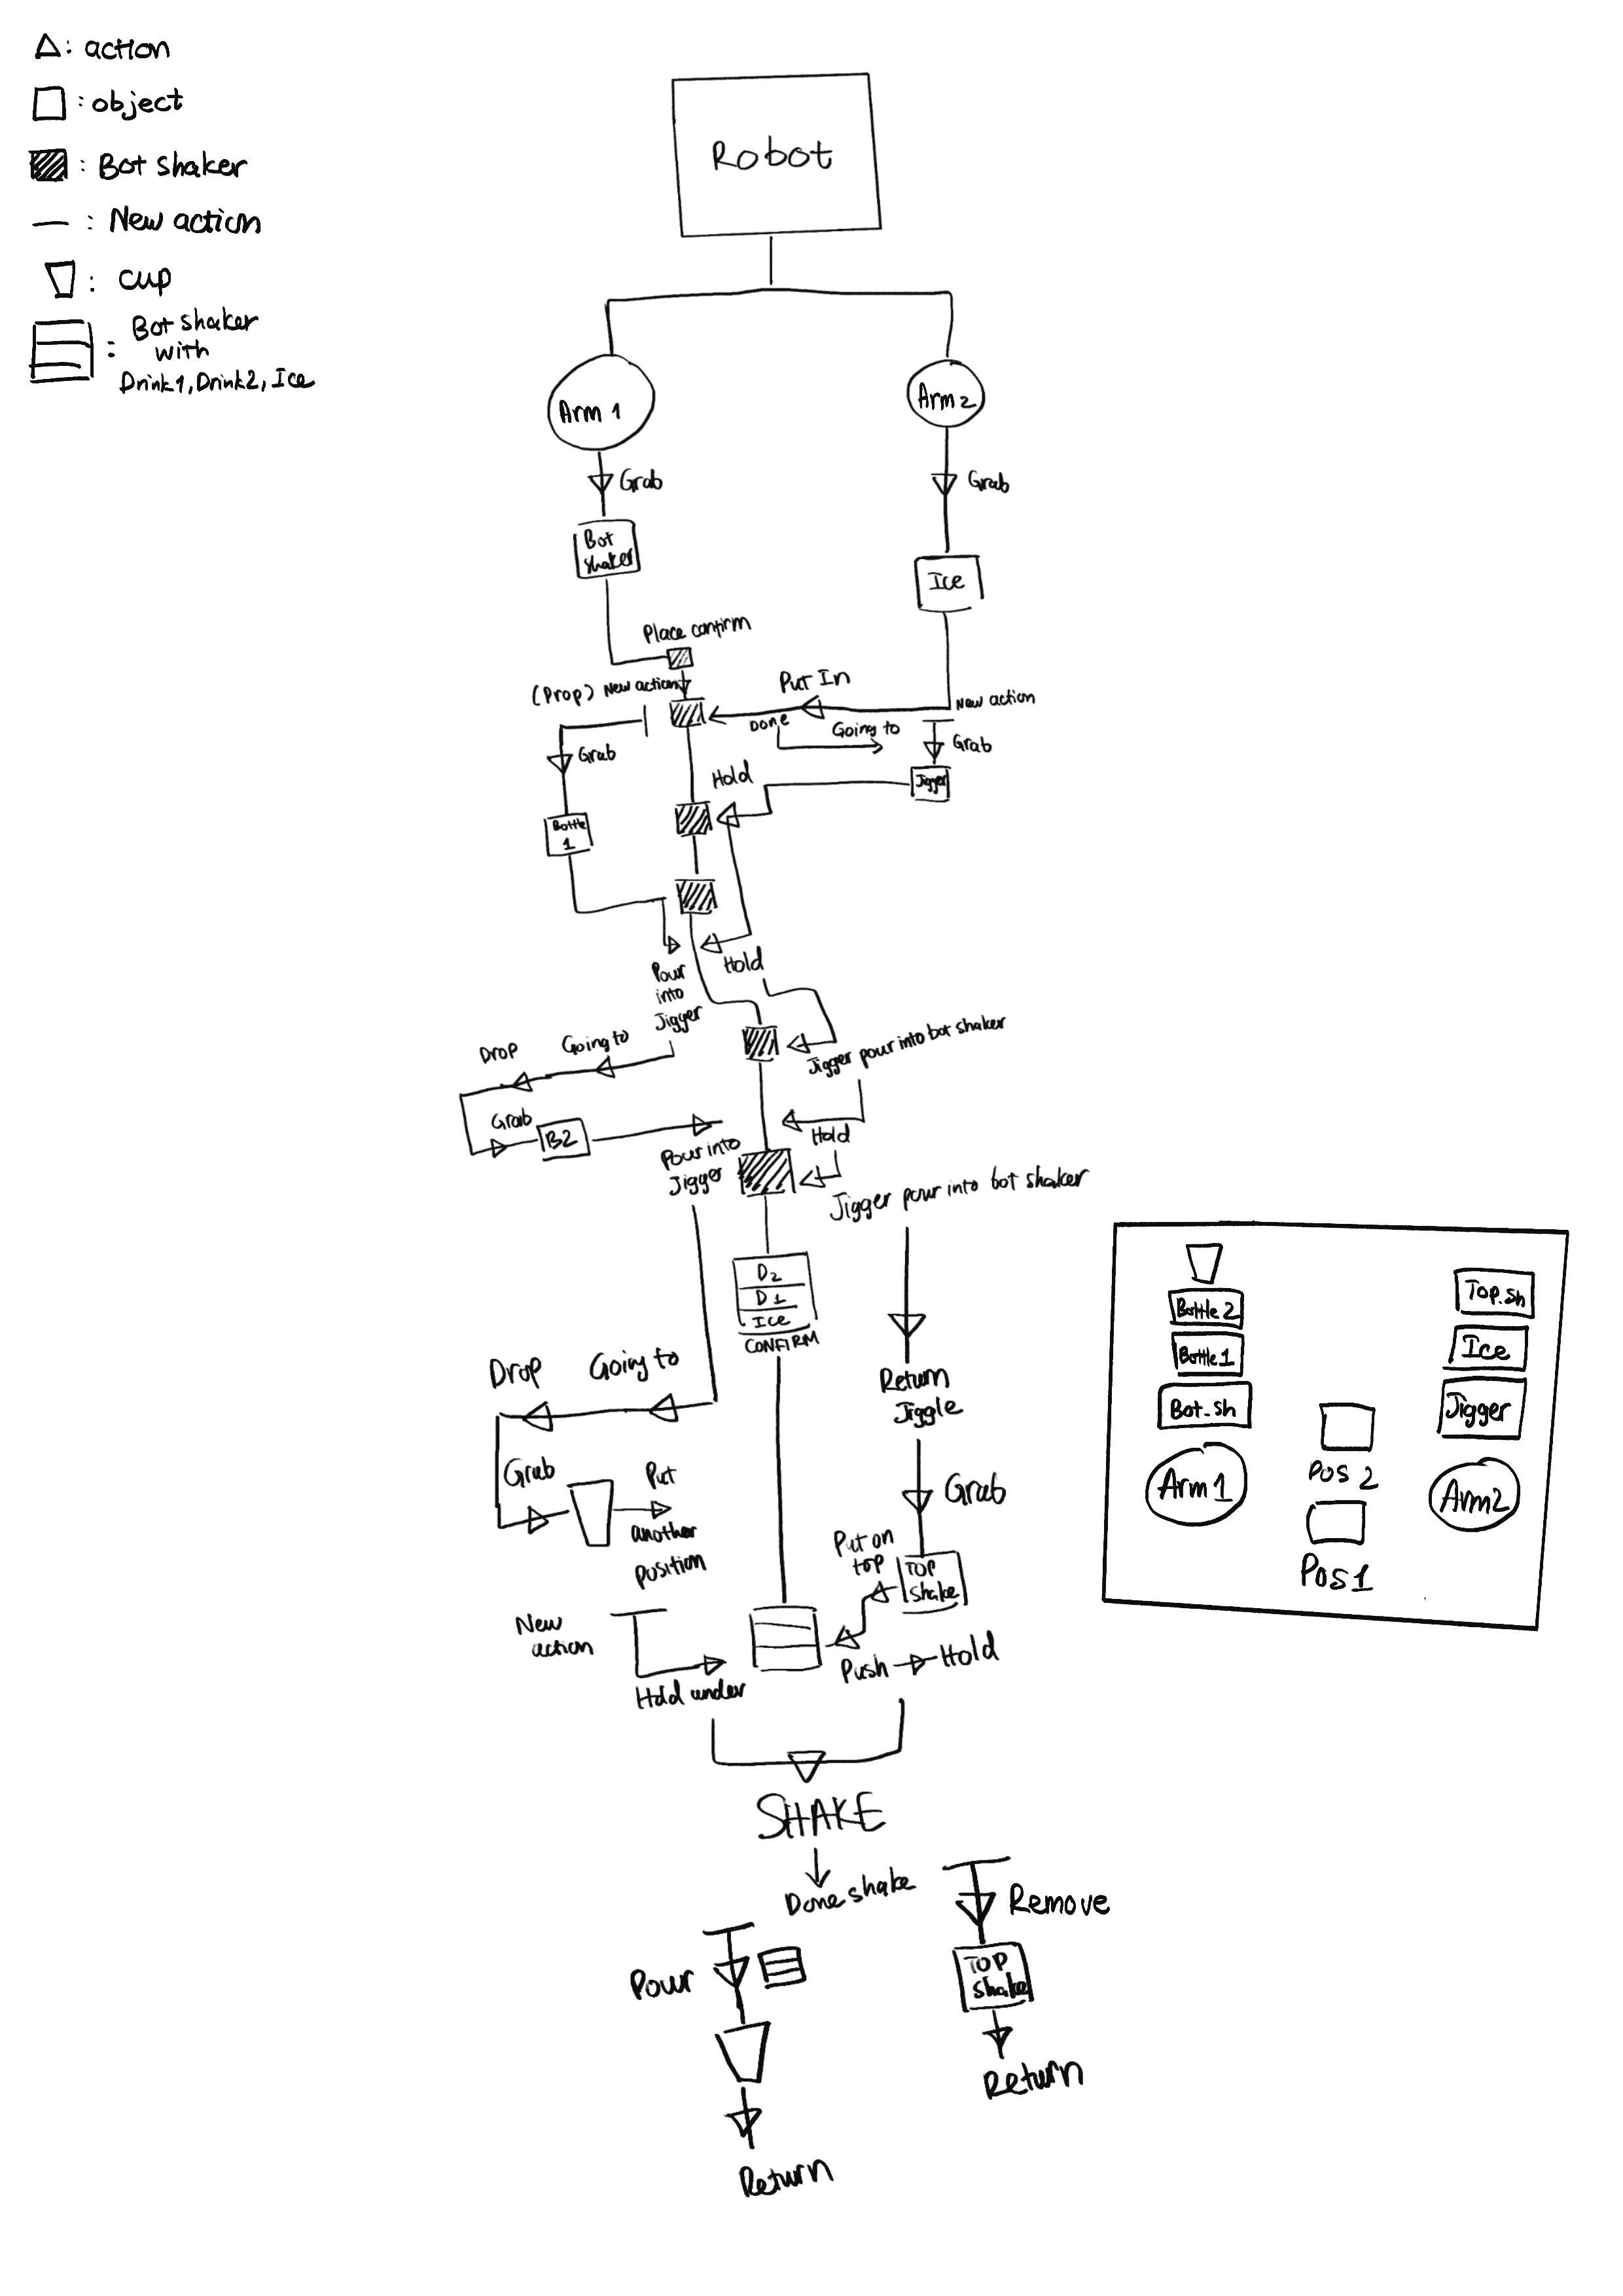 △: action
□: object
: Bot shaker
— : New action
: cup
: Bot shaker
with
Drink1, Drink2, Ice
Robot
Arm 1
Arm 2
Grab
Grab
Bot
shaker
Ice
Place confirm
New action
Put In
New action
Done
Going to
Grab
Grab
Jigger
Hold
Bottle
1
Hold
Pour
into
Jigger
Going to
Drop
Jigger pour into bot shaker
Grab
B2
Hold
Pour into
Jigger
Jigger pour into bot shaker
D2
D1
Ice
CONFIRM
Drop
Going to
Return
Jiggle
Grab
Put
another
position
Grab
Put on
top
TOP
shake
New
action
Hold under
Push
Hold
SHAKE
Done shake
Remove
TOP
shake
Return
Pour
Return
Bottle 2
Bottle 1
Bot_sh
Arm 1
Top_sh
Ice
Jigger
Arm2
POS 2
POS 1